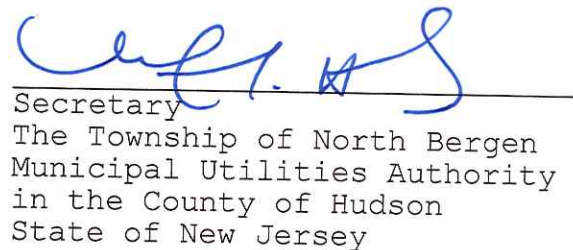 Secretary
The Township of North Bergen
Municipal Utilities Authority
in the County of Hudson
State of New Jersey